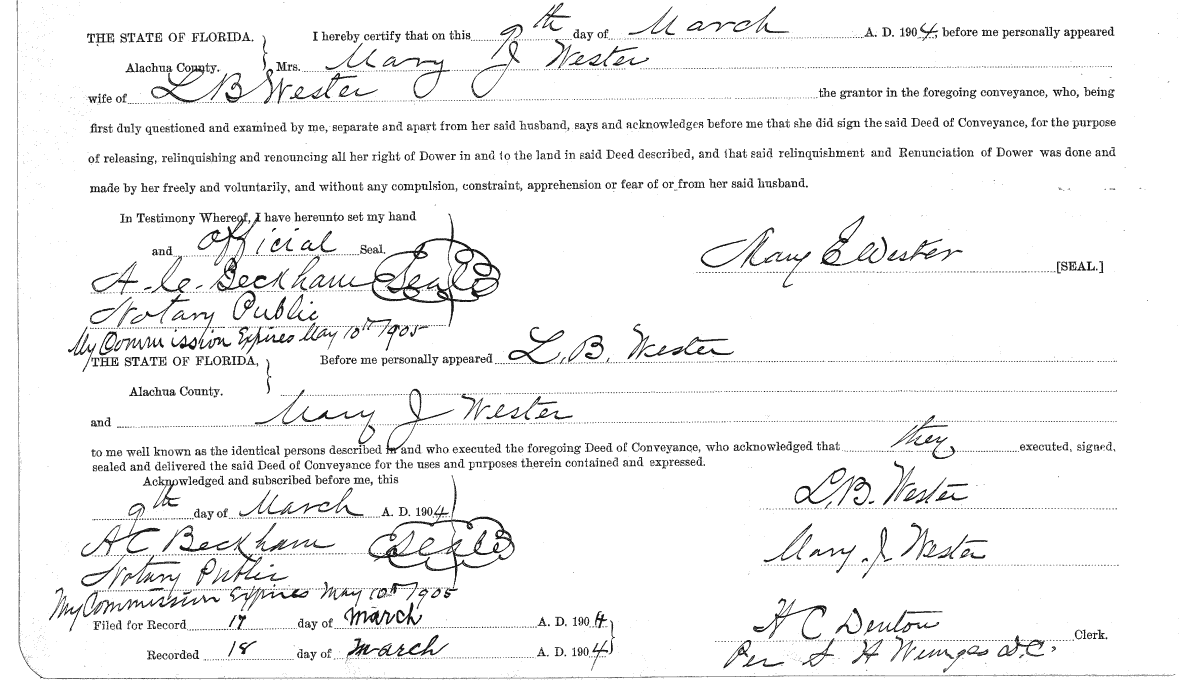 THE STATE OF FLORIDA. } I hereby certify that on this 9th day of March A. D. 1904, before me personally appeared
Alachua County. Mrs. Mary J Wester
wife of L B Wester the grantor in the foregoing conveyance, who, being
first duly questioned and examined by me, separate and apart from her said husband, says and acknowledges before me that she did sign the said Deed of Conveyance, for the purpose
of releasing, relinquishing and renouncing all her right of Dower in and to the land in said Deed described, and that said relinquishment and Renunciation of Dower was done and
made by her freely and voluntarily, and without any compulsion, constraint, apprehension or fear of or from her said husband.
In Testimony Whereof, I have hereunto set my hand
and official Seal.
Mary E Wester [SEAL.]
A. C. Beckham Seal
Notary Public
My Commission Expires May 10th 1905
THE STATE OF FLORIDA, } Before me personally appeared L. B. Wester
Alachua County.
and Mary J Wester
to me well known as the identical persons described in and who executed the foregoing Deed of Conveyance, who acknowledged that they executed, signed,
sealed and delivered the said Deed of Conveyance for the uses and purposes therein contained and expressed.
Acknowledged and subscribed before me, this
9th day of March A. D. 1904
L. B. Wester
A C Beckham Seal
Mary J Wester
Notary Public
My Commission Expires May 10th 1905
Filed for Record 17 day of March A. D. 1904
H C Denton Clerk.
Recorded 18 day of March A. D. 1904
Per S H D.C.